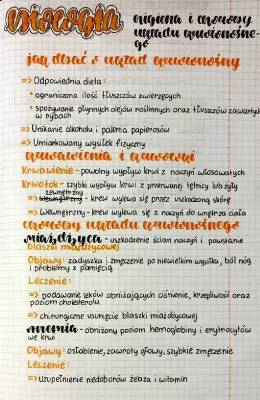 BIOLOGIA
higiena i choroby
układu krwionośne-
go
jak dbać o układ krwionośny
=> Odpowiednia dieta:
• ograniczona ilość tłuszczów zwierzęcych
• spożywanie płynnych olejów roślinnych oraz tłuszczów zawartych
w rybach
=> Unikanie alkoholu i palenia papierosów
=> Umiarkowany wysiłek fizyczny
krwawienia i krwotoki
Krwawienie - powolny wypływ krwi z naczyń włosowatych
Krwotok - szybki wypływ krwi z przerwanej tętnicy lub żyły
zewnętrzny
=> - krew wylewa się przez uszkodzoną skórę
=> Wewnętrzny - krew wylewa się z naczyń do wnętrza ciała
choroby układu krwionośnego
miażdżyca - uszkodzenie ścian naczyń i powstanie
blaszki miażdżycowej
Objawy: zadyszka i zmęczenie po niewielkim wysiłku, ból nóg
i problemy z pamięcią
Leczenie:
=> podawanie leków obniżających ciśnienie, krzepliwość oraz
poziom cholesterolu
=> chirurgiczne usunięcie blaszki miażdżycowej
anemia - obniżony poziom hemoglobiny i erytrocytów
we krwi
Objawy: osłabienie, zawroty głowy, szybkie zmęczenie
Leczenie:
=> Uzupełnienie niedoborów żelaza i witamin